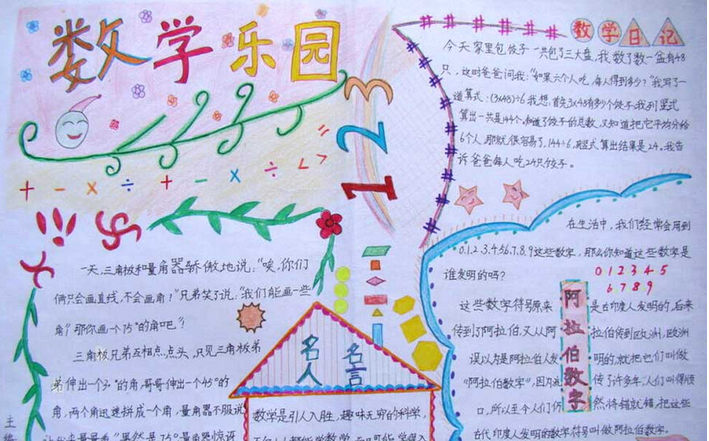 数学乐园
+ - × ÷ + - × ÷ < >
1 2 3
数学日记
今天家里包饺子一共包了三大盘,我数了数一盆有48
只,这时爸爸问我:"如果六个人吃,每人得到多少?"我写了一
道算式:(3×48)÷6我想首先3×48有多少个饺子我列竖式
算出一共是144个,知道了饺子的总数,又知道把它平均分给
6个人,那就很容易了,144÷6,竖式算出结果是24。我告
诉爸爸每人吃24只饺子。
一天,三角板和量角器骄傲地说:"唉,你们
俩只会画直线,不会画角!"兄弟笑了说:"我们能画一些
角?那你画一个75°的角吧?"
三角板兄弟互相点点头,只见三角板弟
弟伸出一个30°的角,哥哥伸出一个45°的
角,两个角迅速拼成一个角,量角器不服说
名人名言
数学是引人入胜,趣味无穷的科学,
在生活中,我们经常会用到
0.1.2.3.4.5.6.7.8.9这些数字,那么你知道这些数字是
谁发明的吗?
0 1 2 3 4 5
6 7 8 9
阿拉伯数字
这些数字符号原来是古印度人发明的,后来
传到了阿拉伯,又从阿拉伯传到欧洲,欧洲
误以为是阿拉伯人发明的,就把它们叫做
"阿拉伯数字",因为传了许多年,人们叫得顺
口,所以至今人们依然将错就错,把这些
古代印度人发明的数字符号叫做阿拉伯数字。